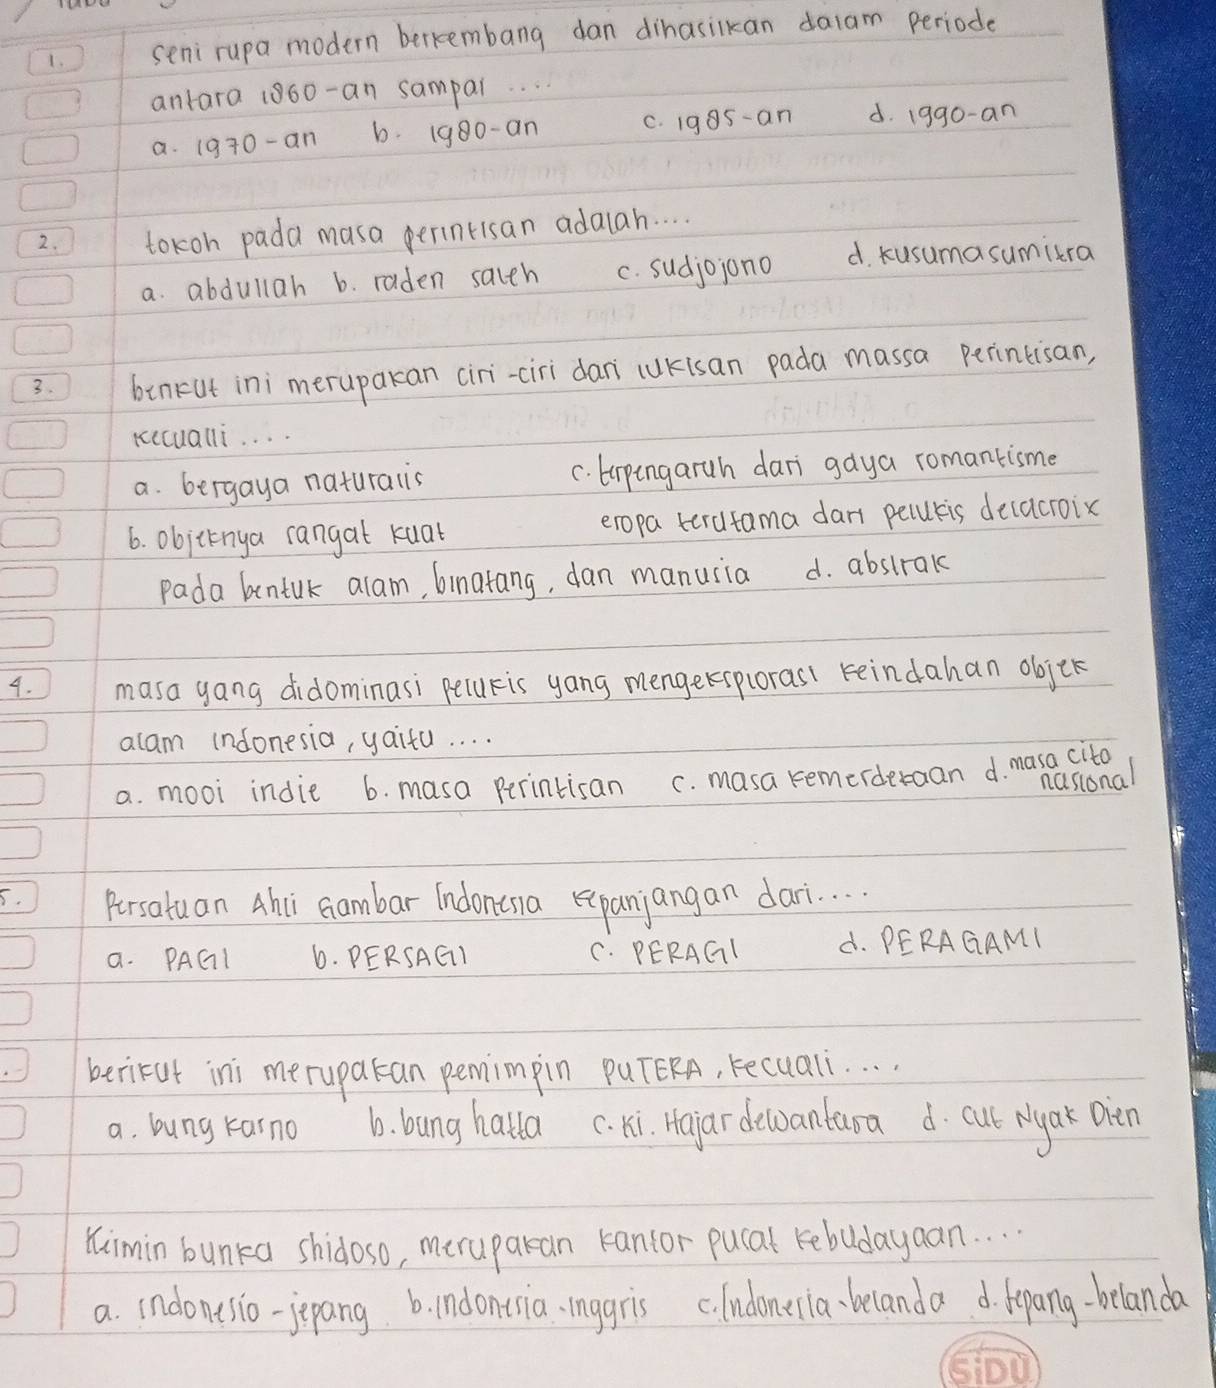 1. seni rupa modern berkembang dan dihasilkan dalam periode
antara 1860-an sampai ....
a. 1970-an b. 1980-an c. 1985-an d. 1990-an
2. tokoh pada masa perintisan adalah....
a. abdullah b. raden saleh c. sudjojono d. kusumasumitra
3. berikut ini merupakan ciri-ciri dari lukisan pada massa perintisan,
kecualli ....
a. bergaya naturalis c. terpengaruh dari gaya romantisme
b. objeknya sangat kuat eropa terutama dari pelukis delacroix
pada bentuk alam, binatang, dan manusia d. abstrak
4. masa yang didominasi pelukis yang mengeksplorasi keindahan objek
alam indonesia, yaitu ....
a. mooi indie b. masa perintisan c. masa kemerdekaan d. masa cito nasional
5. Persatuan Ahli Gambar Indonesia kepanjangan dari....
a. PAGI b. PERSAGI c. PERAGI d. PERAGAMI
berikut ini merupakan pemimpin PUTERA, kecuali....
a. bung karno b. bung hatta c. Ki. Hajar dewantara d. cut Nyak Dien
Keimin bunka shidoso, merupakan kantor pusat kebudayaan....
a. indonesio-jepang b. indonesia-inggris c. Indonesia-belanda d. jepang-belanda
SiDU